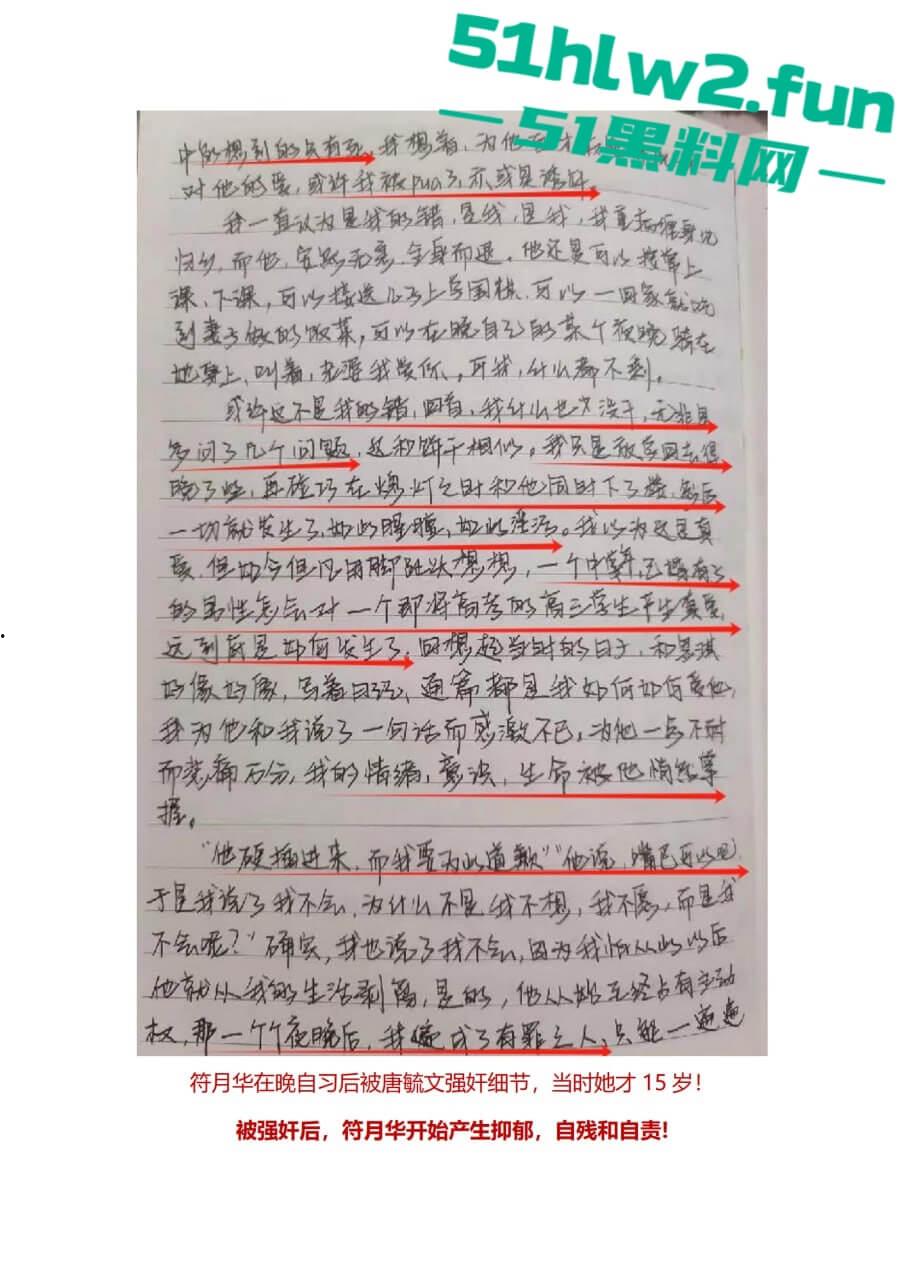 51hlw2.fun
51黑料网
中能想到的只有死。我想着，为他
对他的爱，或许我被pua了，亦或是诱奸。
我一直认为是我的错，是我，是我，我
归乡，而他，安然无恙，全身而退。他还是可以
课、下课，可以接送儿子上学围棋，可以一回家就吃
到妻子做的饭菜，可以在晚自己的某个夜晚骑在
她身上，叫着，老婆我爱你。可我，什么都不剩。
或许这不是我的错，回首，我什么也没干，无非是
多问了几个问题，这和饼干相似。我只是放学回去得
晚了些，再碰巧在熄灯之时和他同时下了楼，然后
一切就发生了，如此腥膻，如此淫污。我以为这是真
爱，但如今但凡用脚趾头想想，一个中年，已婚有子
的男性怎么会对一个即将高考的高三学生产生真爱，
这到底是如何发生了。回想起当时的日子，和思琪
好像好像，写着日记，通篇都是我如何如何爱他，
我为他和我说了一句话而感激不已，为他一点不耐
而悲痛万分，我的情绪，意识，生命被他悄然掌
握。
“他硬插进来，而我要为此道歉”“他说，嘴巴可以吧，
于是我说了我不会，为什么不是我不想，我不愿，而是我
不会呢？”确实，我也说了我不会，因为我怕从此以后
他就从我的生活剥离，是的，他从始至终占有主动
权，那一个个夜晚后，我便成了有罪之人，只能一遍遍
符月华在晚自习后被唐毓文强奸细节，当时她才 15 岁！
被强奸后，符月华开始产生抑郁，自残和自责!